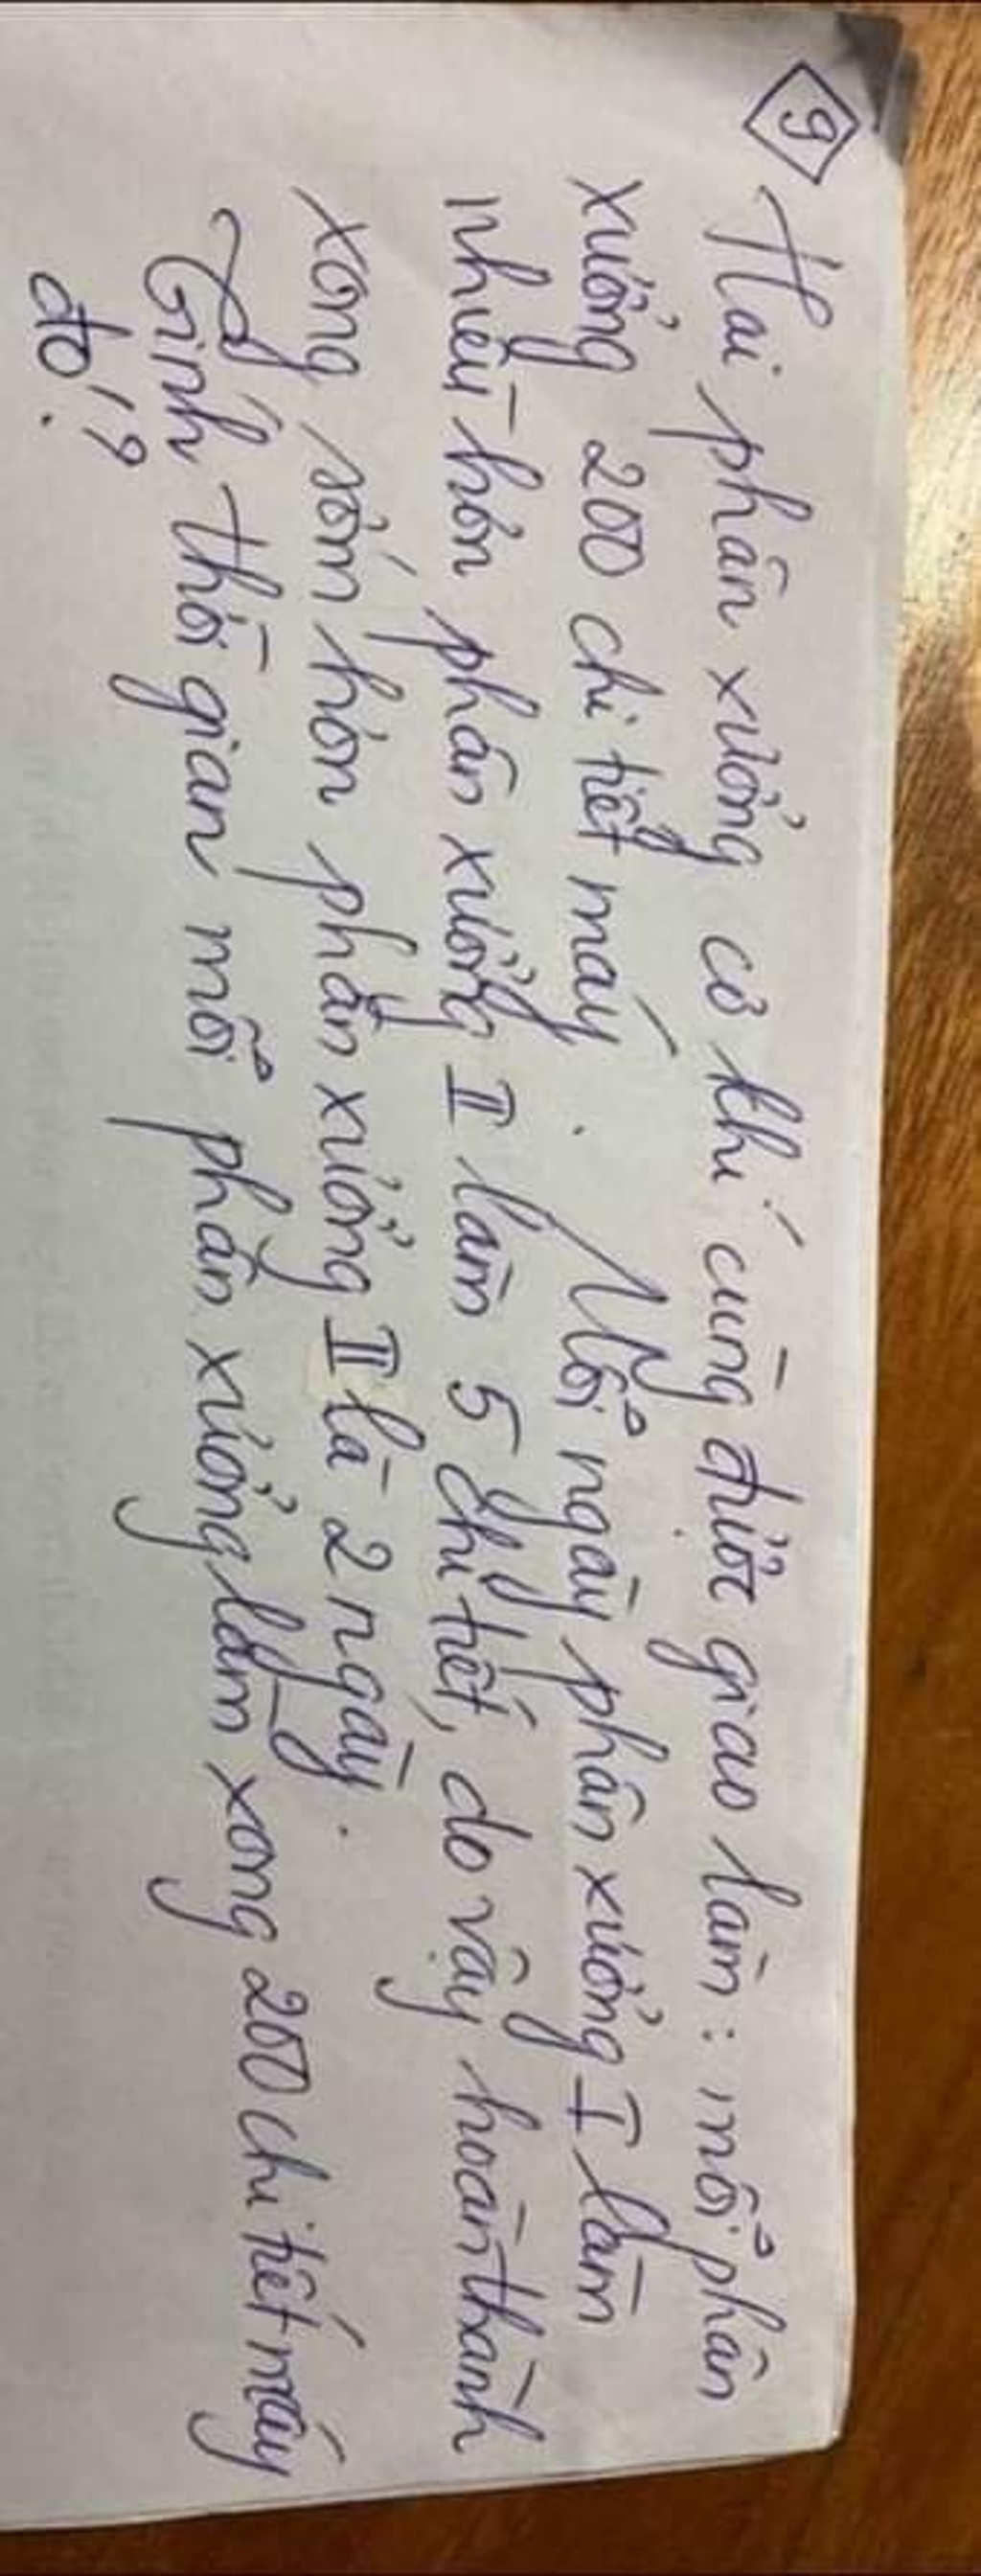 9 Hai phân xưởng cơ khí cùng được giao làm: mỗi phân
xưởng 200 chi tiết máy. Mỗi ngày phân xưởng I làm
nhiều hơn phân xưởng II làm 5 chi tiết, do vậy hoàn thành
xong sớm hơn phân xưởng II là 2 ngày.
Tính thời gian mỗi phân xưởng làm xong 200 chi tiết máy
đó!?